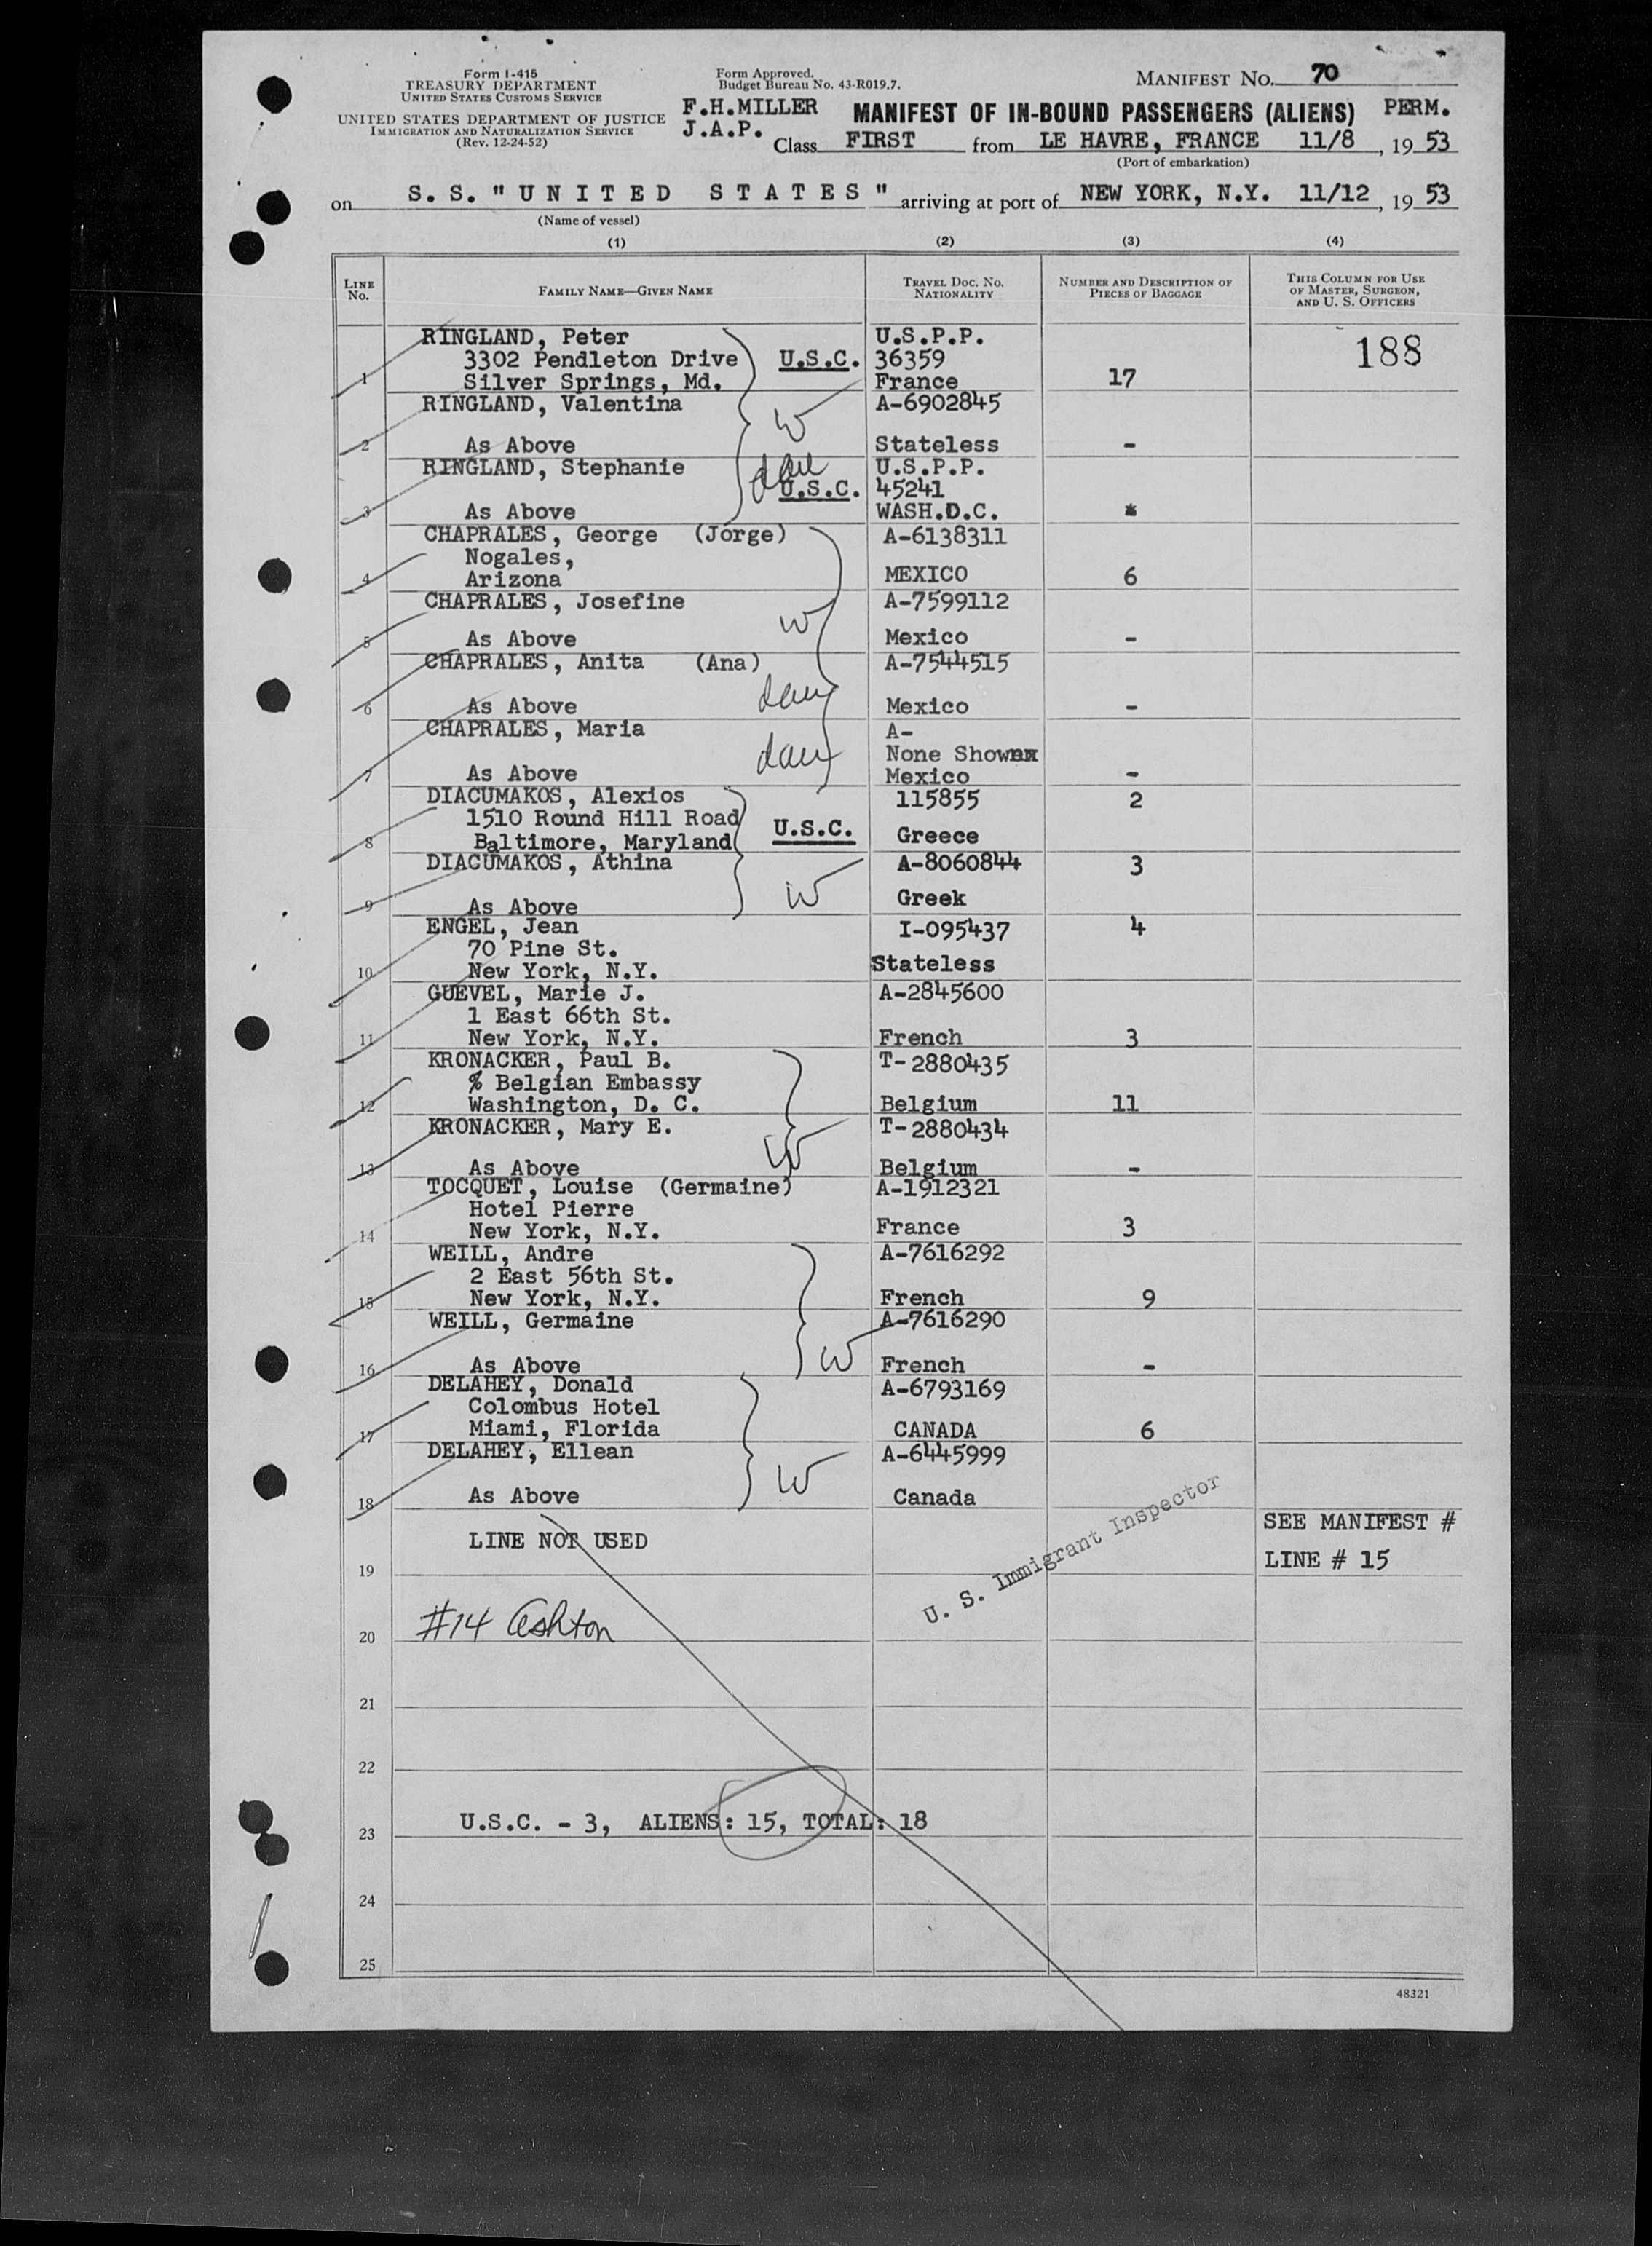 Form I-415
TREASURY DEPARTMENT
UNITED STATES CUSTOMS SERVICE
UNITED STATES DEPARTMENT OF JUSTICE
IMMIGRATION AND NATURALIZATION SERVICE
(Rev. 12-24-52)
Form Approved.
Budget Bureau No. 43-R019.7.
MANIFEST No. 70
F.H.MILLER
J.A.P.
MANIFEST OF IN-BOUND PASSENGERS (ALIENS) PERM.
Class FIRST from LE HAVRE, FRANCE 11/8, 19 53
(Port of embarkation)
on S. S. "UNITED STATES" arriving at port of NEW YORK, N.Y. 11/12, 19 53
(Name of vessel)
(1) (2) (3) (4)
LINE No. FAMILY NAME—GIVEN NAME TRAVEL DOC. NO. NATIONALITY NUMBER AND DESCRIPTION OF PIECES OF BAGGAGE THIS COLUMN FOR USE OF MASTER, SURGEON, AND U. S. OFFICERS
RINGLAND, Peter U.S.P.P. 188
3302 Pendleton Drive U.S.C. 36359
1 Silver Springs, Md. France 17
RINGLAND, Valentina A-6902845
W
2 As Above Stateless -
RINGLAND, Stephanie dau U.S.P.P.
U.S.C. 45241
3 As Above WASH.D.C. *
CHAPRALES, George (Jorge) A-6138311
Nogales,
4 Arizona MEXICO 6
CHAPRALES, Josefine A-7599112
W
5 As Above Mexico -
CHAPRALES, Anita (Ana) A-7544515
dau
6 As Above Mexico -
CHAPRALES, Maria A-
dau None Shownxx
7 As Above Mexico -
DIACUMAKOS, Alexios 115855 2
1510 Round Hill Road U.S.C.
8 Baltimore, Maryland Greece
DIACUMAKOS, Athina A-8060844 3
W
9 As Above Greek
ENGEL, Jean I-095437 4
70 Pine St.
10 New York, N.Y. Stateless
GUEVEL, Marie J. A-2845600
1 East 66th St.
11 New York, N.Y. French 3
KRONACKER, Paul B. T-2880435
% Belgian Embassy
12 Washington, D. C. Belgium 11
KRONACKER, Mary E. T-2880434
W
13 As Above Belgium -
TOCQUET, Louise (Germaine) A-1912321
Hotel Pierre
14 New York, N.Y. France 3
WEILL, Andre A-7616292
2 East 56th St.
15 New York, N.Y. French 9
WEILL, Germaine A-7616290
16 As Above W French -
DELAHEY, Donald A-6793169
Colombus Hotel
17 Miami, Florida CANADA 6
DELAHEY, Ellean A-6445999
W
18 As Above Canada
U. S. Immigrant Inspector
SEE MANIFEST #
LINE NOT USED
19 LINE # 15
20 #14 Ashton
21
22
23 U.S.C. - 3, ALIENS: 15, TOTAL: 18
24
25
48321